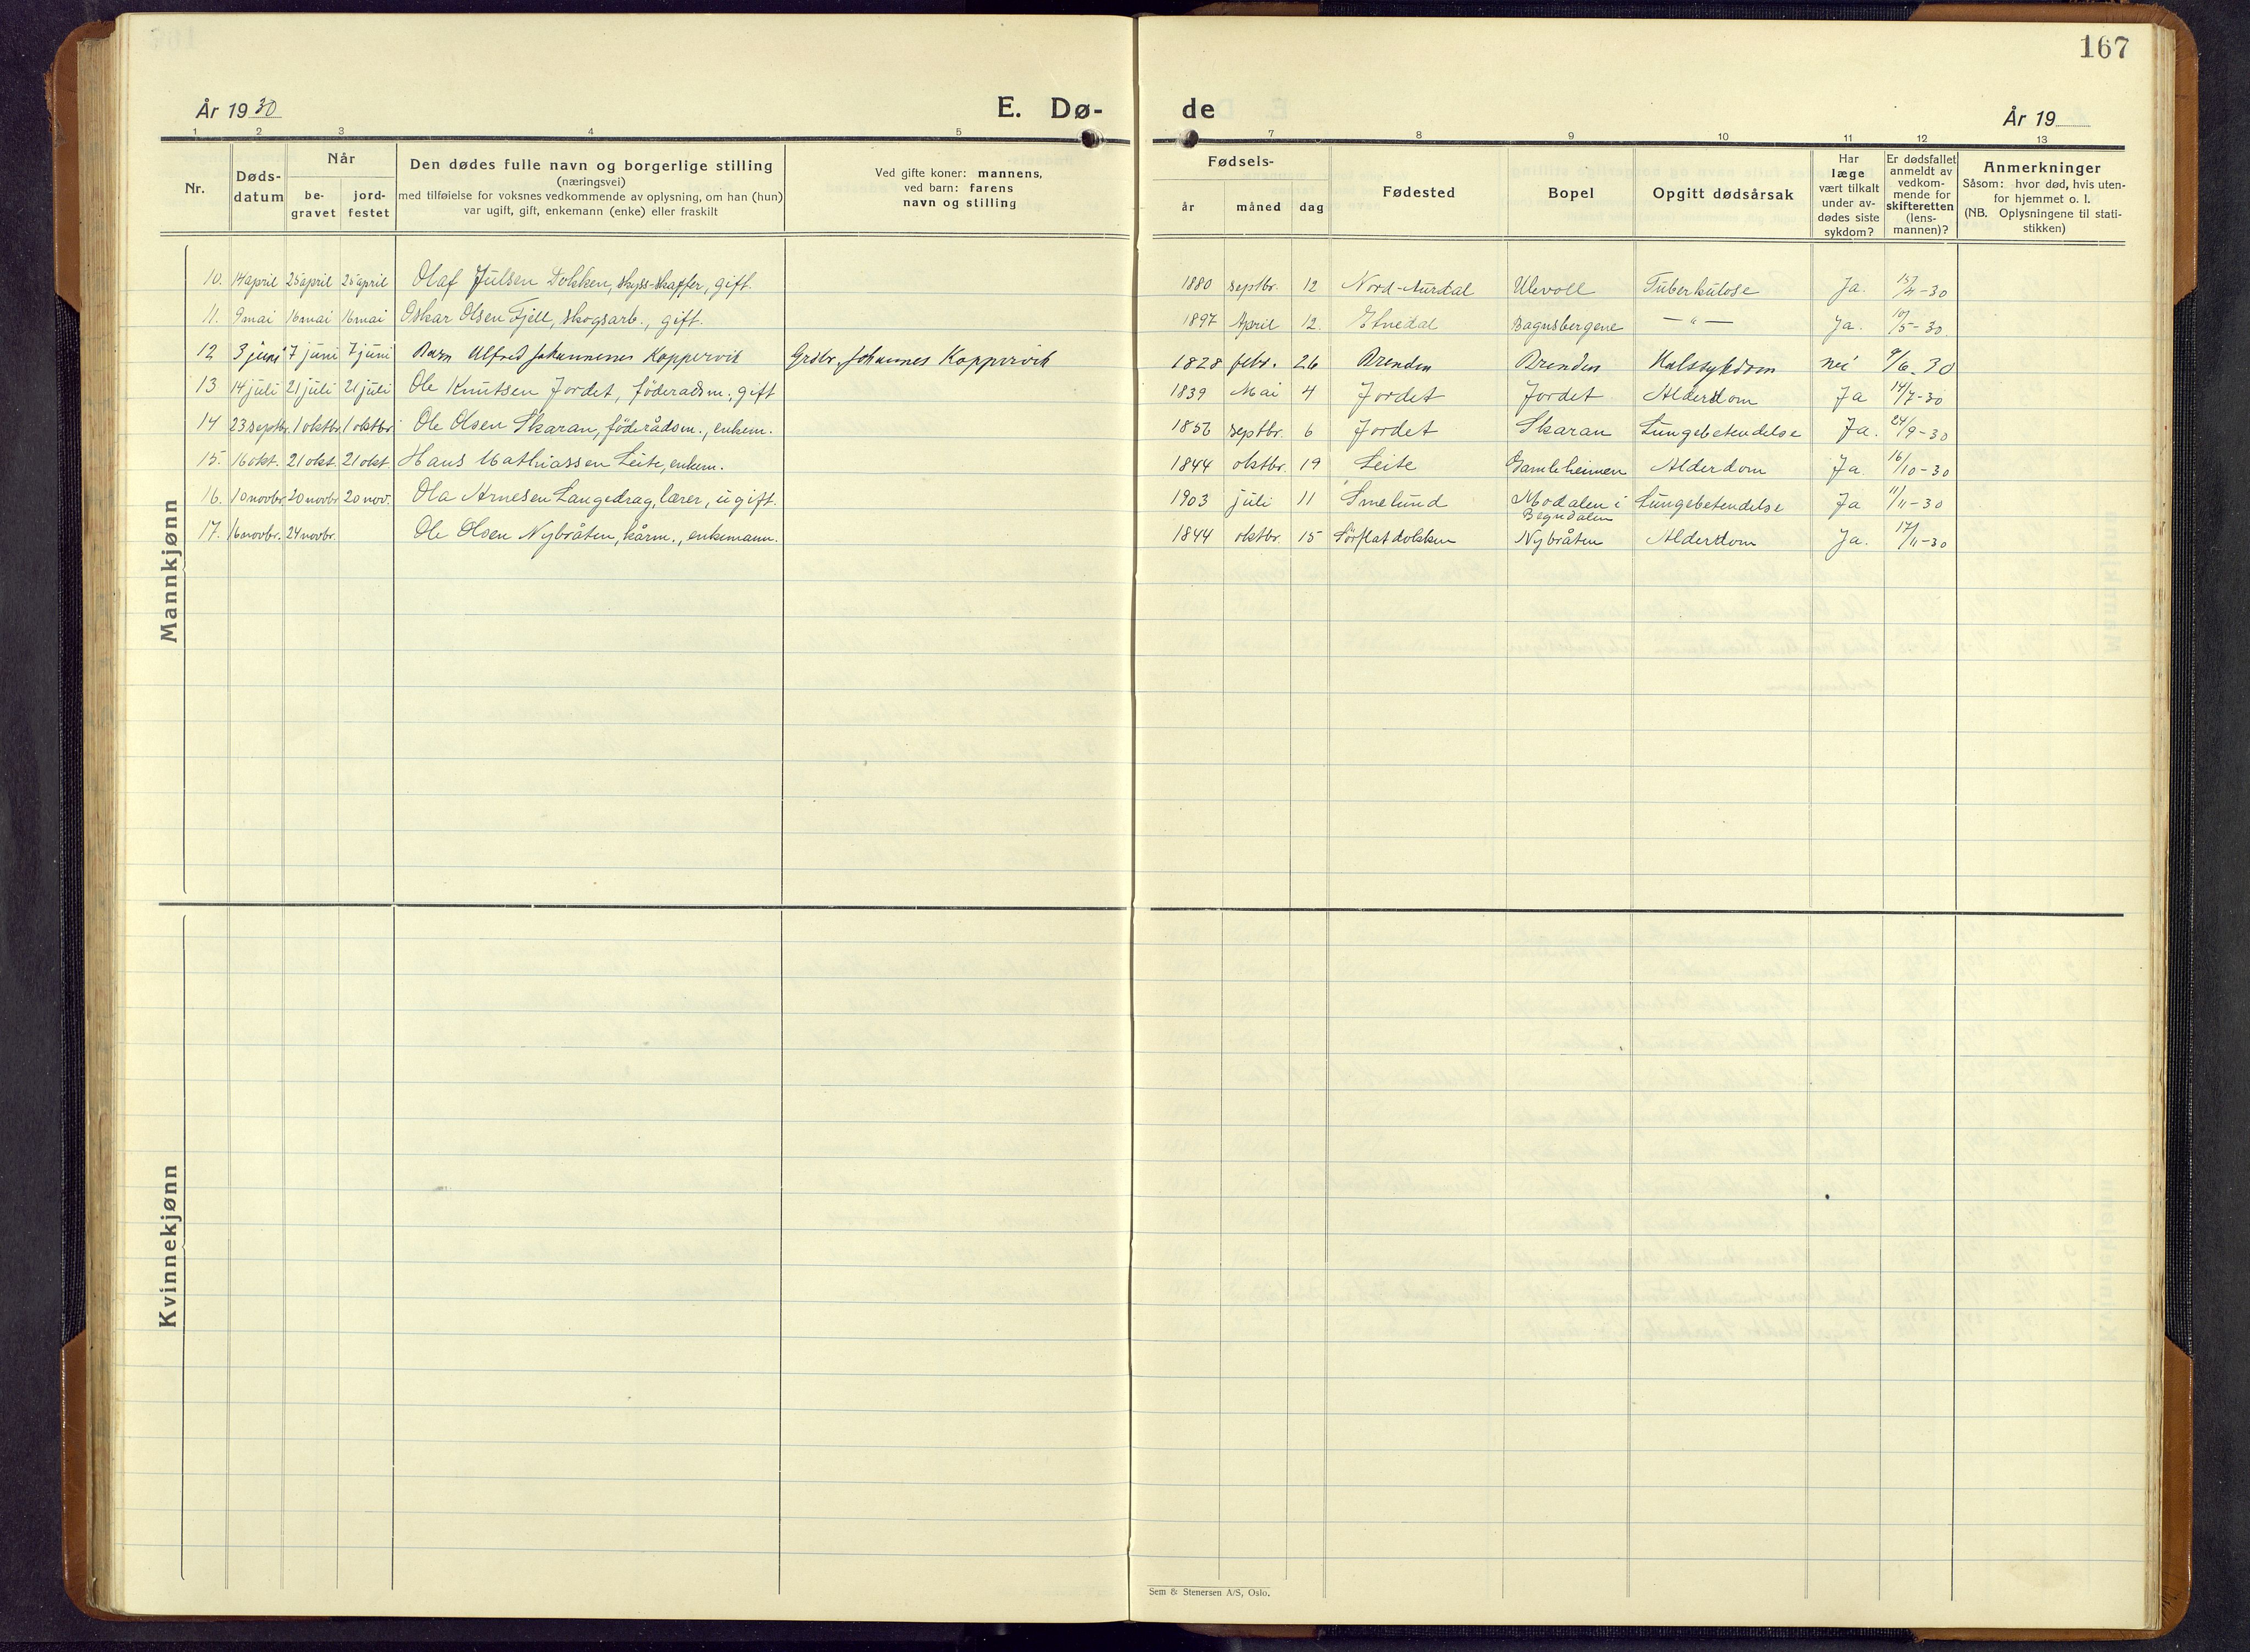 167
År 1930 E. Dø- de År 19
1 2 3 4 5 7 8 9 10 11 12 13
Nr. Døds-datum Når be-gravet jord-festet Den dødes fulle navn og borgerlige stilling (næringsvei) med tilføielse for voksnes vedkommende av oplysning, om han (hun) var ugift, gift, enkemann (enke) eller fraskilt Ved gifte koner: mannens, ved barn: farens navn og stilling Fødsels- år måned dag Fødested Bopel Opgitt dødsårsak Har læge vært tilkalt under av-dødes siste sykdom? Er dødsfallet anmeldt av vedkom-mende for skifteretten (lens-mannen)? Anmerkninger Såsom: hvor død, hvis uten-for hjemmet o. l. (NB. Oplysningene til stati-stikken)
Mannkjønn
10. 14 april 25 april 25 april Olaf Julsen Dokken, skyss-skaffer, gift. 1880 septbr. 12 Nord-Aurdal Ulevoll Tuberkulose Ja. 15/4-30
11. 9 mai 16 mai 16 mai Oskar Olsen Fjell, skogsarb., gift. 1897 April 12. Etnedal Bagnsbergene — " — Ja. 10/5-30.
12 3 juni 7 juni 7 juni Barn Alfred Johannenes Koppervik Grdbr. Johannes Koppervik 1828 febr. 26 Brenden Brenden Halssykdom nei 9/6. 30
13 14 juli 21 juli 21 juli Ole Knutsen Jordet, föderådsm., gift 1839 Mai 4 Jordet Jordet Alderdom Ja 14/7-30
14 23 septbr. 1 oktbr. 1 oktbr. Ole Olsen Skaran, föderådsm., enkem. 1856 septbr. 6 Jordet Skaran Lungebetendelse Ja. 24/9-30
15. 16 okt. 21 okt. 21 okt. Hans Mathiassen Leite, enkem. 1844 oktbr. 19 Leite Gamleheimen Alderdom Ja. 16/10-30
16. 10 novbr. 20 novbr 20 nov. Ola Arnesen Langedrag, lærer, ugift. 1903 juli 11 Smelund Modalen i Begndalen Lungebetendelse Ja 11/11-30
17. 16 novbr. 24 novbr. Ole Olsen Nybråten, kårm., enkemann. 1844 oktbr. 15 Sörflatdokken Nybråten Alderdom Ja. 17/11-30
Kvinnekjønn
Sem & Stenersen A/S, Oslo.